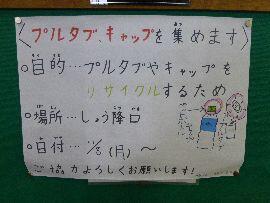 〈プルタブ、キャップを集めます〉
○目的…プルタブやキャップを
リサイクルするため
○場所…しょう降口
○日付…11/5(月)〜
ご協力よろしくお願いします!